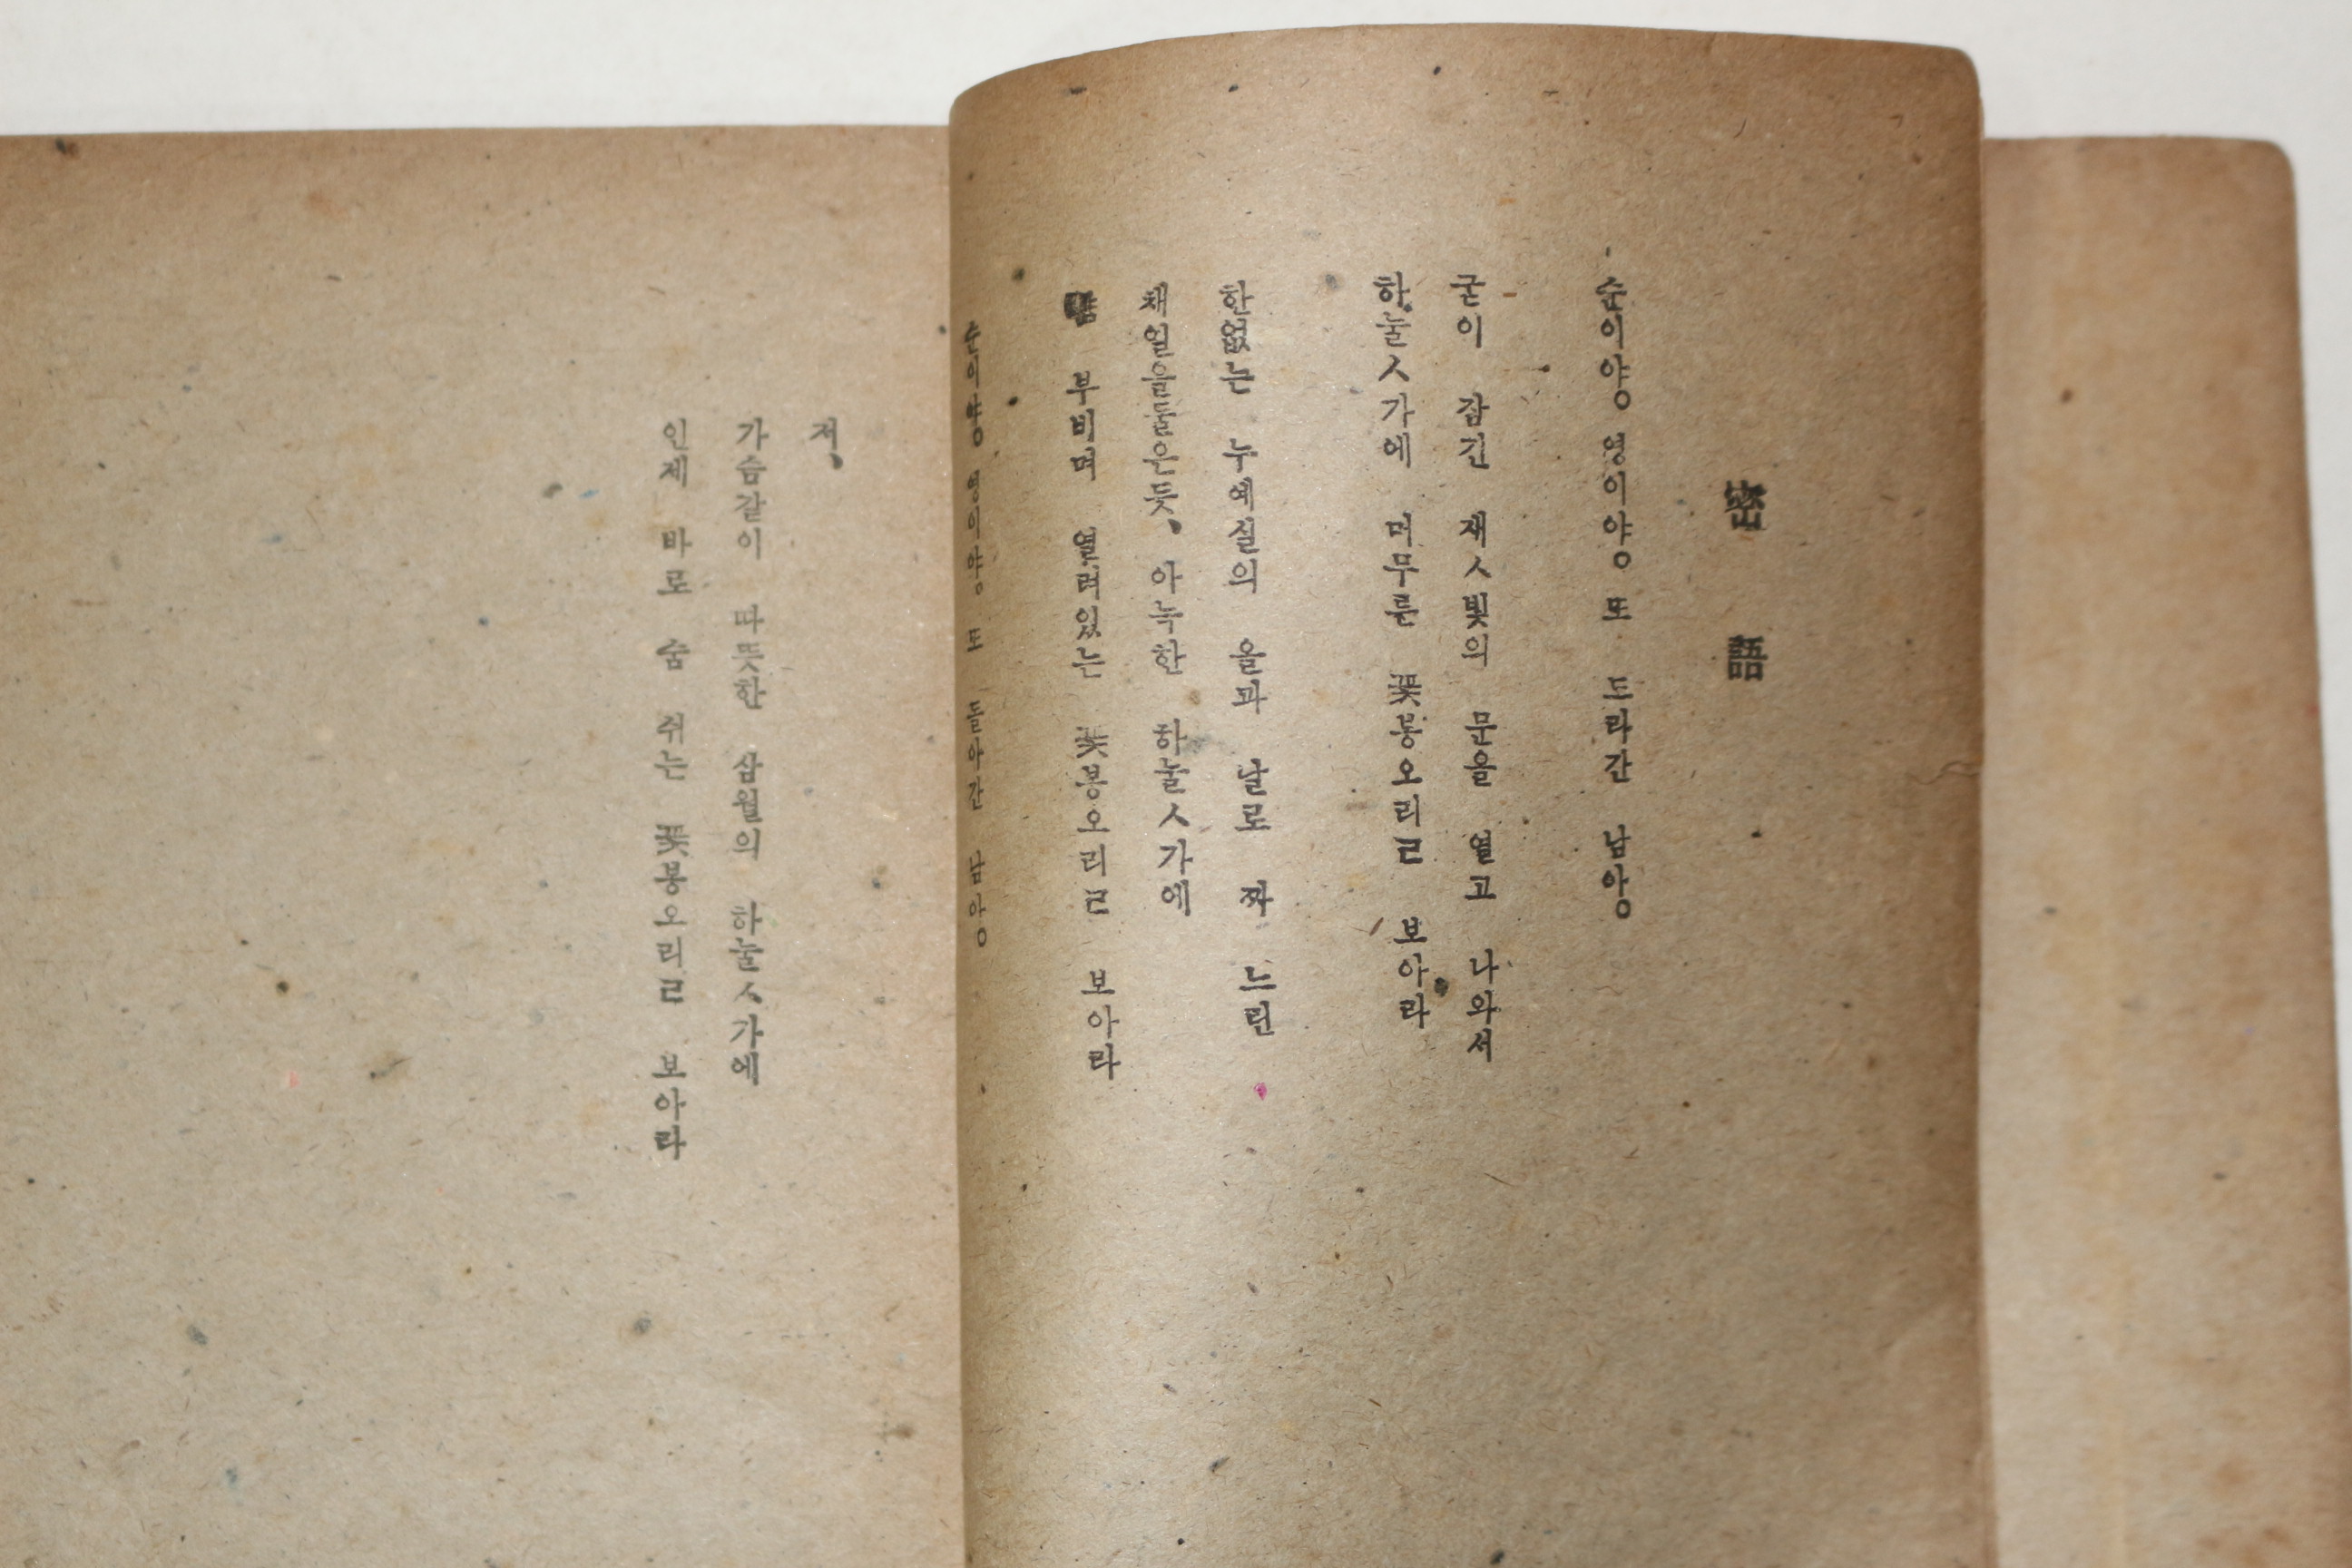 密語
순이야ᇰ 영이야ᇰ 또 도라간 남아ᇰ
굳이 잠긴 재ㅅ빛의 문을 열고 나와서
하눌ㅅ가에 머무른 꽃봉오리ㄹ 보아라
한없는 누예실의 올과 날로 짜 느린
채일을둘은듯、아늑한 하눌ㅅ가에
부비며 열려있는 꽃봉오리ㄹ 보아라
순이야ᇰ 영이야ᇰ 또 돌아간 남아ᇰ
저、
가슴같이 따뜻한 삼월의 하눌ㅅ가에
인제 바로 숨 쉬는 꽃봉오리ㄹ 보아라